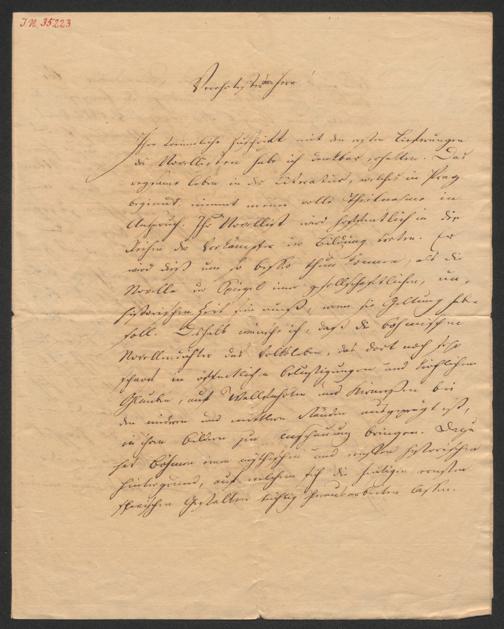 I.N. 35223
Verehrtester Herr!
Ihre freundliche Zuschrift mit den ersten Lieferungen
des Novellisten habe ich dankbar erhalten. Das
regsame Leben in der Literatur, welches in Prag
beginnt, nimmt meine volle Theilnahme in
Anspruch. Ihr Novellist wird hoffentlich in die
Reihen der Vorkämpfer der Bildung treten. Er
wird dieß um so besser thun können, als die
Novelle der Spiegel einer gesellschaftlichen, un-
historischen Zeit sein muß, wenn sie Geltung haben
soll. Deshalb wünsche ich, daß die böhmischen
Novellendichter das Volksleben, das dort noch sehr
scharf in öffentlichen Belustigungen und kirchlichem
Glauben, auf Wallfahrten und Kirmessen bei
den niederen und mittleren Ständen ausgeprägt ist,
in ihren Bildern zur Anschauung bringen. Dazu
hat Böhmen einen mythischen und ernsten historischen
Hintergrund, auf welchem sich die heutigen
Gestalten tüchtig herausarbeiten lassen.